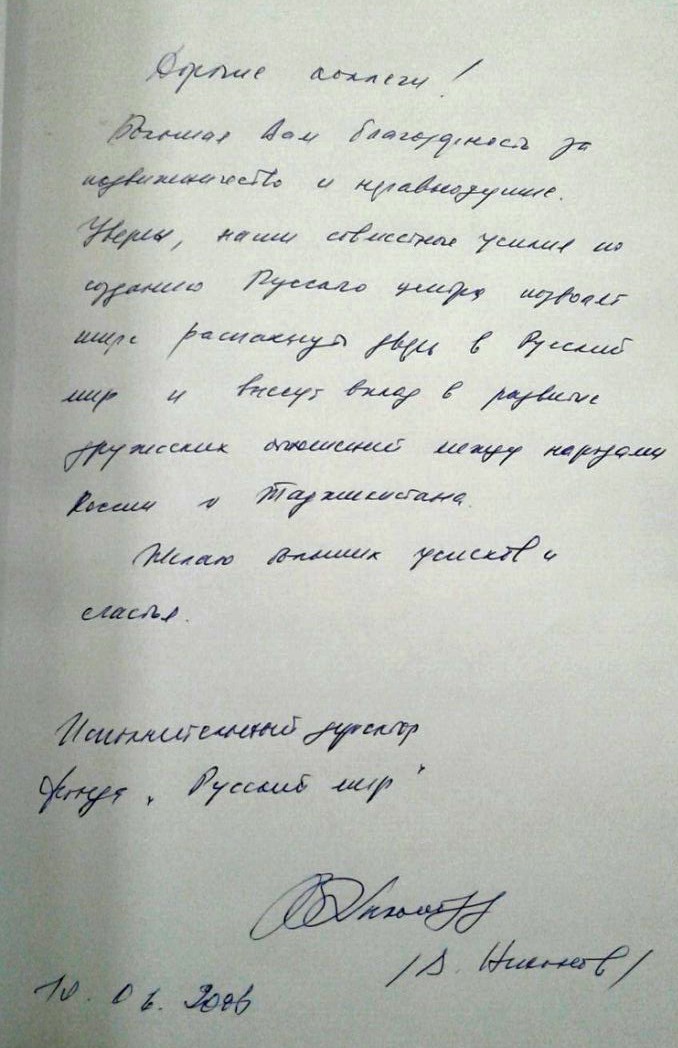 Дорогие коллеги!
Большая Вам благодарность за
подвижничество и неравнодушие.
Уверен, наши совместные усилия по
созданию Русского центра позволят
шире распахнуть дверь в Русский
мир и внесут вклад в развитие
дружеских отношений между народами
России и Таджикистана.
Желаю больших успехов и
счастья.
Исполнительный директор
фонда „Русский мир"
/В. Никонов/
10.06.2008